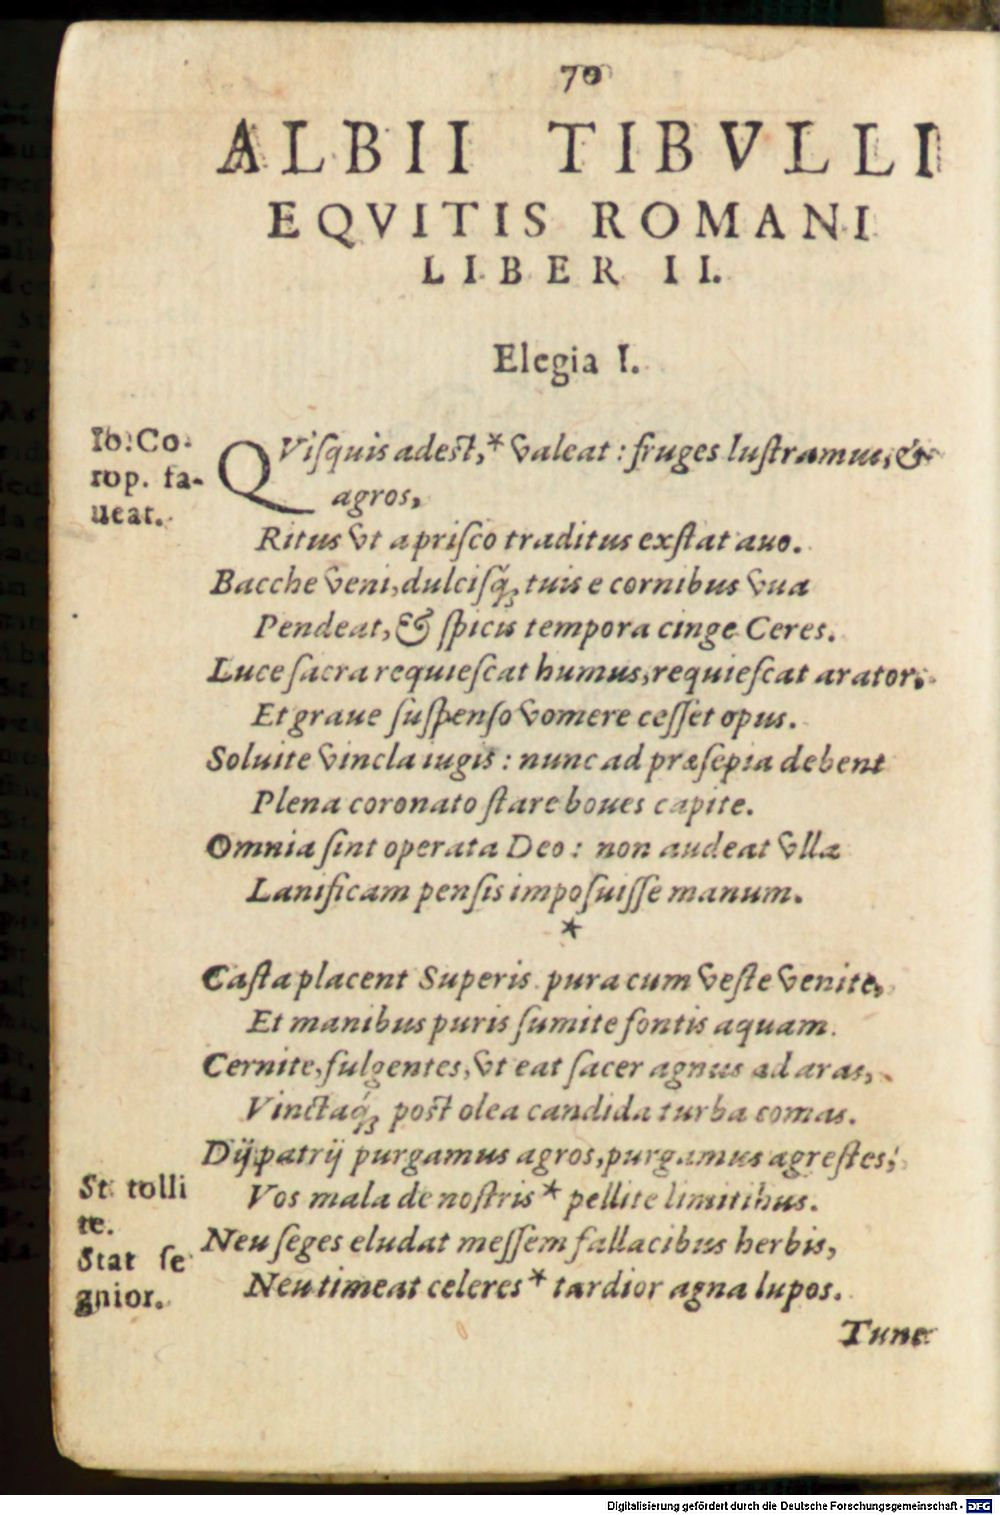 70
ALBII TIBVLLI
EQVITIS ROMANI
LIBER II.
Elegia I.
Io. Co-
rop. fa-
ueat.
QVisquis adest,* valeat: fruges lustramus, &
agros,
Ritus vt a prisco traditus exstat auo.
Bacche veni, dulcisq́; tuis e cornibus vua
Pendeat, & spicis tempora cinge Ceres.
Luce sacra requiescat humus, requiescat arator:
Et graue suspenso vomere cesset opus.
Soluite vincla iugis: nunc ad præsepia debent
Plena coronato stare boues capite.
Omnia sint operata Deo: non audeat vlla
Lanificam pensis imposuisse manum.
*
Casta placent Superis. pura cum veste venite,
Et manibus puris sumite fontis aquam.
Cernite, fulgentes, vt eat sacer agnus ad aras,
Vinctaq́; post olea candida turba comas.
Dij patrij purgamus agros, purgamus agrestes;
St. tolli
te.
Vos mala de nostris * pellite limitibus.
Neu seges eludat messem fallacibus herbis,
Stat se
gnior.
Neu timeat celeres * tardior agna lupos.
Tunc
Digitalisierung gefördert durch die Deutsche Forschungsgemeinschaft - DFG